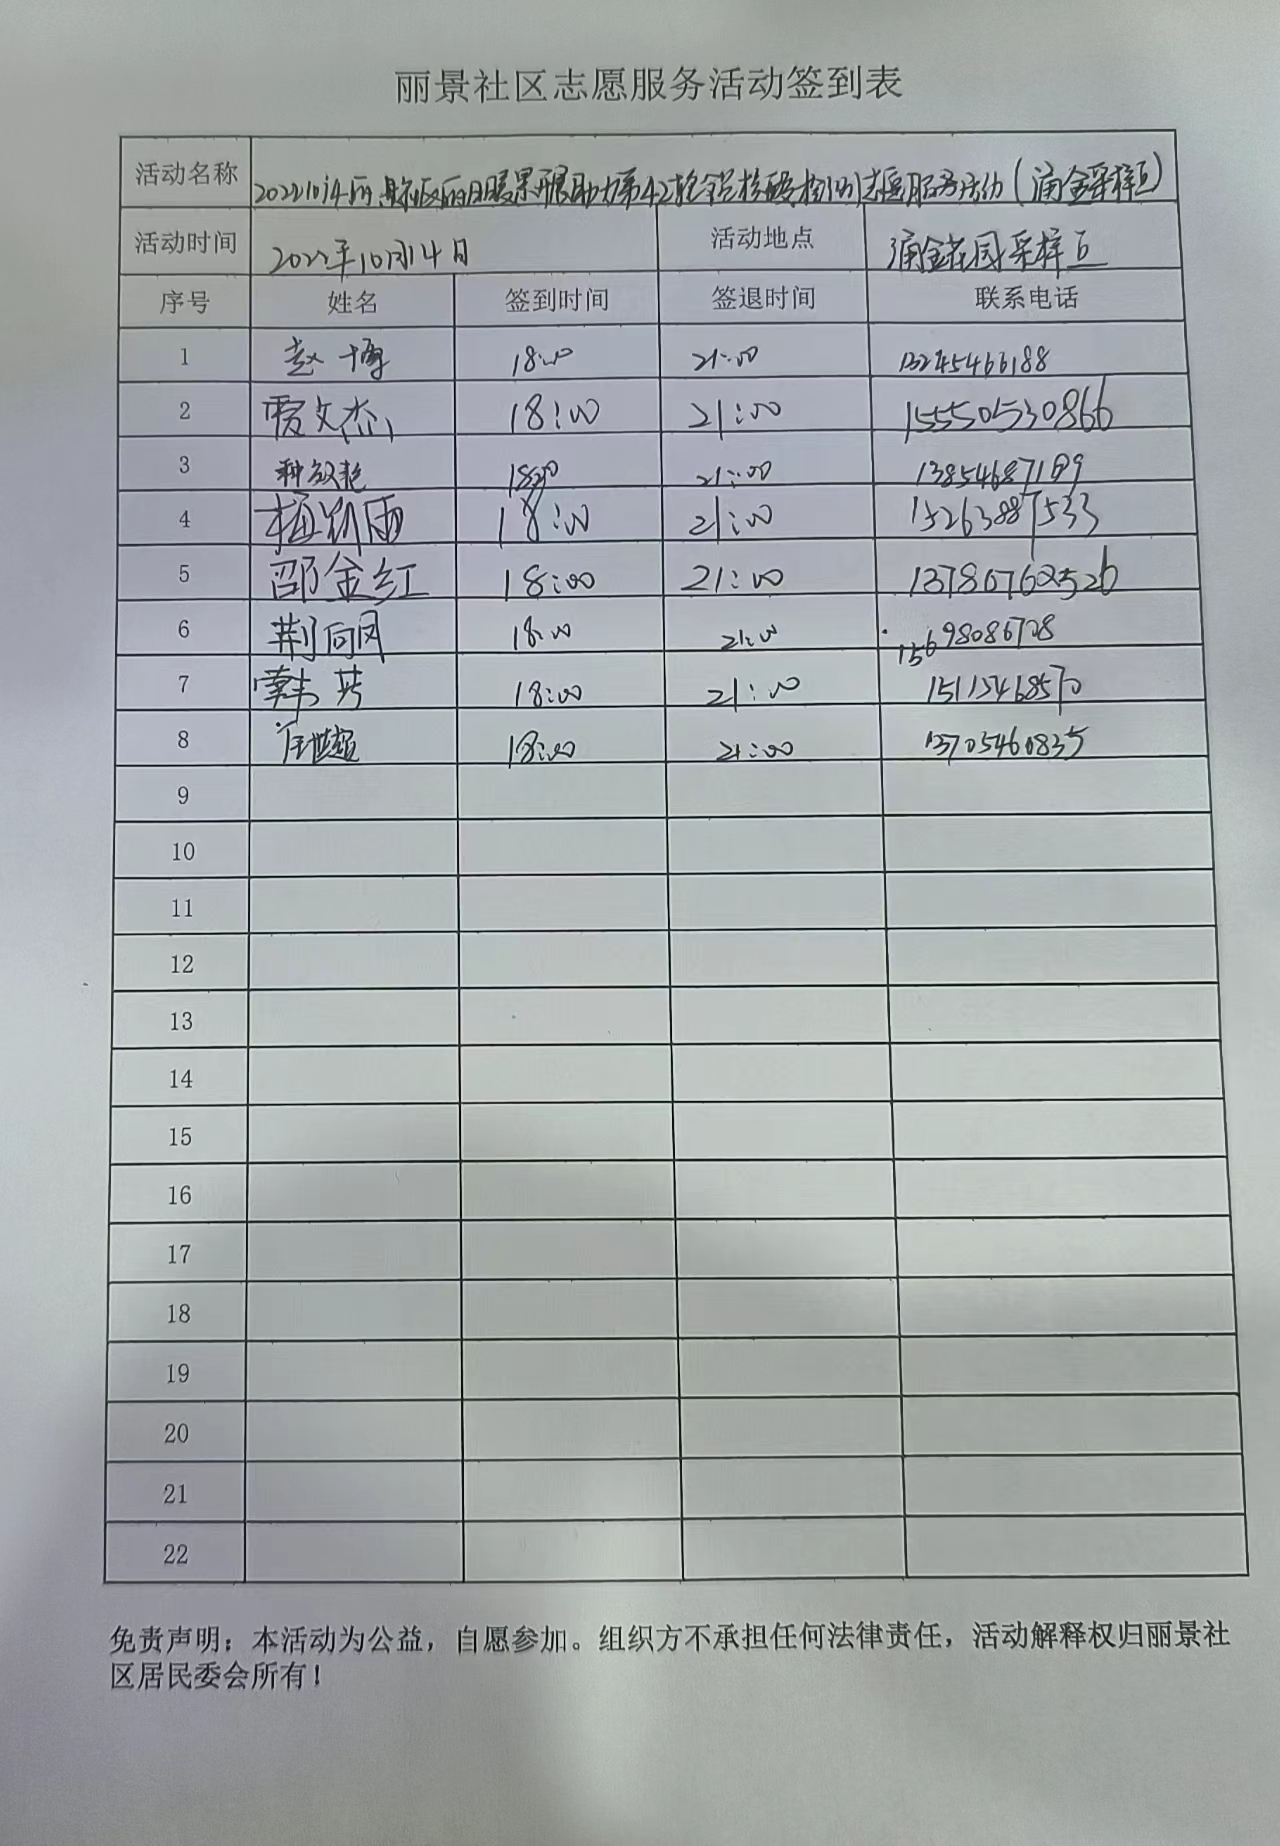 丽景社区志愿服务活动签到表
活动名称 20221014丽景社区开展助力第42轮全员核酸检测志愿服务活动(涌金采样区)
活动时间 2022年10月14日 活动地点 涌金花园采样区
序号 姓名 签到时间 签退时间 联系电话
1 赵博 18:00 21:00 13245466188
2 贾文杰 18:00 21:00 15550530866
3 18:00 21:00 13854687189
4 雨 18:00 21:00 15263887533
5 邵金红 18:00 21:00
6 荆向凤 18:00 21:00 15698086708
7 18:00 21:00
8 18:00 21:00 13705460835
9
10
11
12
13
14
15
16
17
18
19
20
21
22
免责声明：本活动为公益，自愿参加。组织方不承担任何法律责任，活动解释权归丽景社
区居民委会所有！